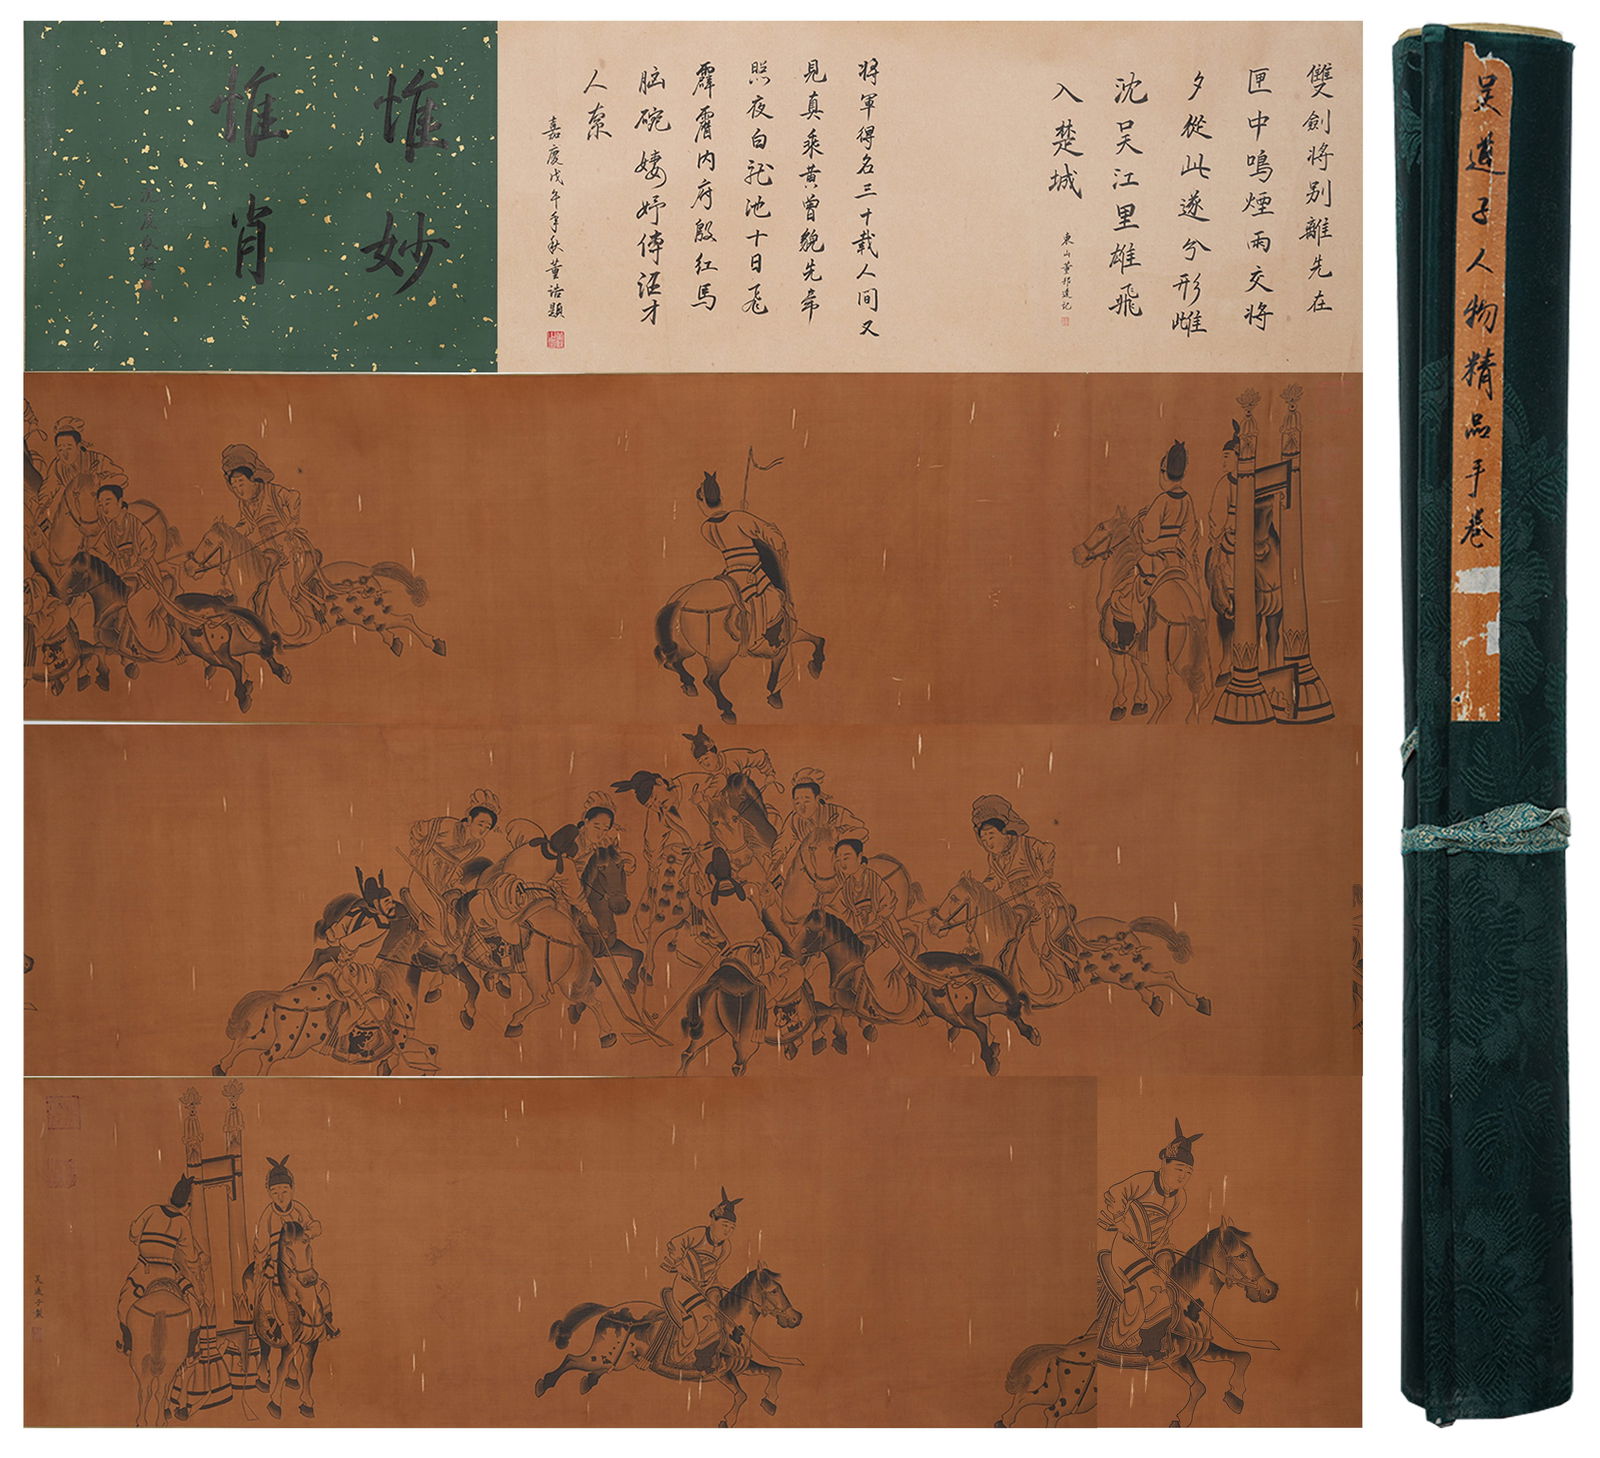 惟妙
惟肖
雙劍將别離先在
匣中鳴煙雨交將
夕從此遂分形雌
沈吴江里雄飛
入楚城
東山董邦達記
將軍得名三十載人間又
見真乘黄曾貌先帝
照夜白龍池十日飛
霹靂内府殷红馬
脑碗婕妤傳詔才
人索
嘉慶戊午季秋董誥題
吴道子
吴道子人物精品手卷